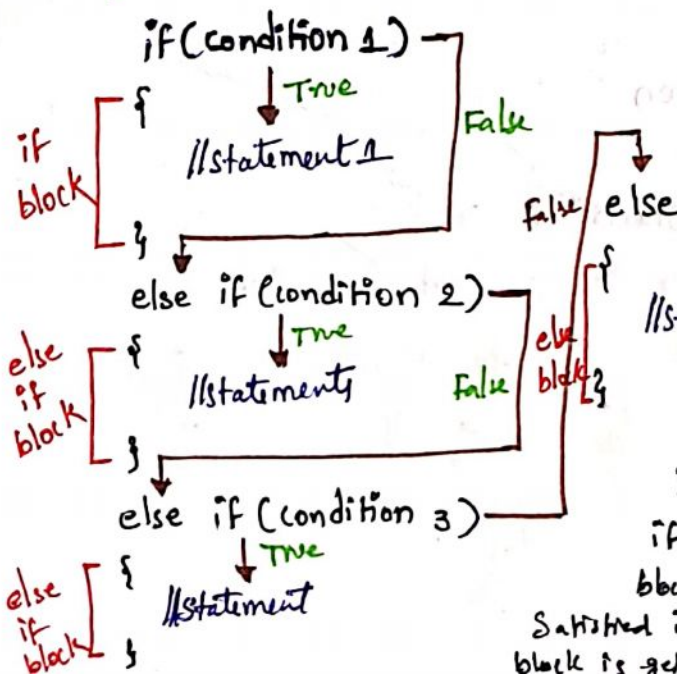 if(condition 1)
True
False
{
if
block
//statement 1
}
else if(condition 2)
True
False
else
if
block
{
//statements
}
else if (condition 3)
True
False
else
if
block
{
//statement
}
else
{
else
block
}
if
block is